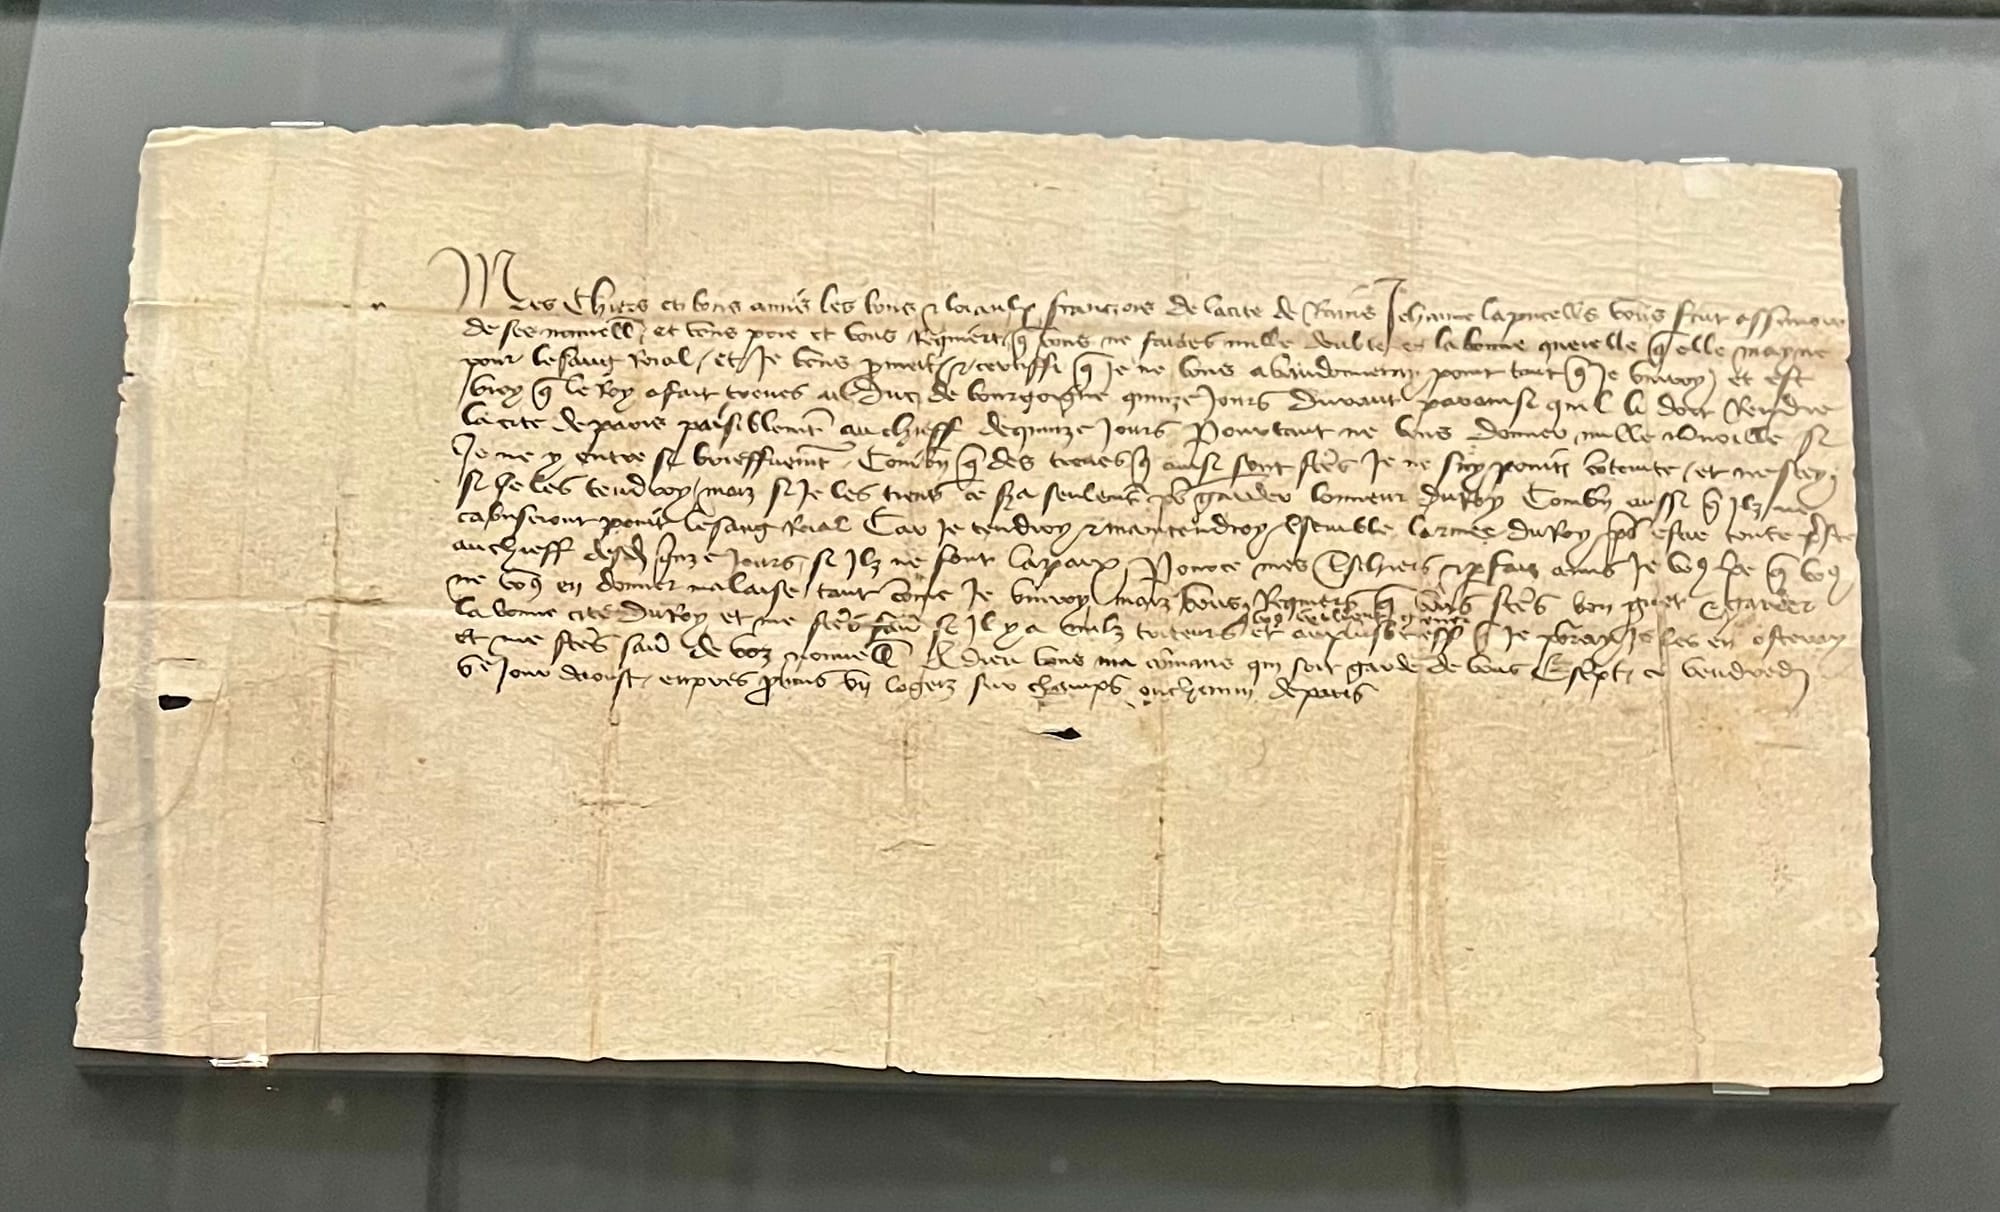 Mes chiers et bons amis les bons & loiaulx franczois de la cite de Rains Jehanne la pucelle vous fait assavoir
de ses nouvelles et vous prie et vous requiert que vous ne faides nulle doubte en la bonne querelle que elle mayne
pour le sang Roial et Je vous promet & certiffi que je ne vous abandonneray point tant que je vivroy et est
vroy que le Roy a fait treves au Duc de bourgoigne quinze jours durant par ainsi quil li doit Rendre
la cite de paris paisiblement au chieff de quinze jours Pourtant ne vous donner nulle mervoille si
Je ne y entre si brieffvement Combien que des treves que ainsi sont faites je ne suy point contente et ne scey
si je les tendroy maiz si je les tiens ce sera seulement pour garder lonneur du Roy Combien aussi que ilz ne
cabuseront point le sang Roial Car je tendroy & maintendroy ensemble larmee du Roy pour estre toute preste
au chieff desdiz quinze jours si ilz ne font la paix Pour ce mes tres chiers & parfaiz amis je vous prie que vous
ne vous en donner malaise tant comme je vivroy maiz vous Requiers que vous faites bon guet & garder
la bonne cite du Roy et me faites savoir si il y a nulz triteurs qui vous veullent grever
et au plus brieff que je porray je les en osteray
et me faites savoir de voz nouvelles A Dieu vous commans qui soit garde de vous Escript ce vendredi
Ve jour daoust enpres Provins un logeiz sur champs ou chemin de paris